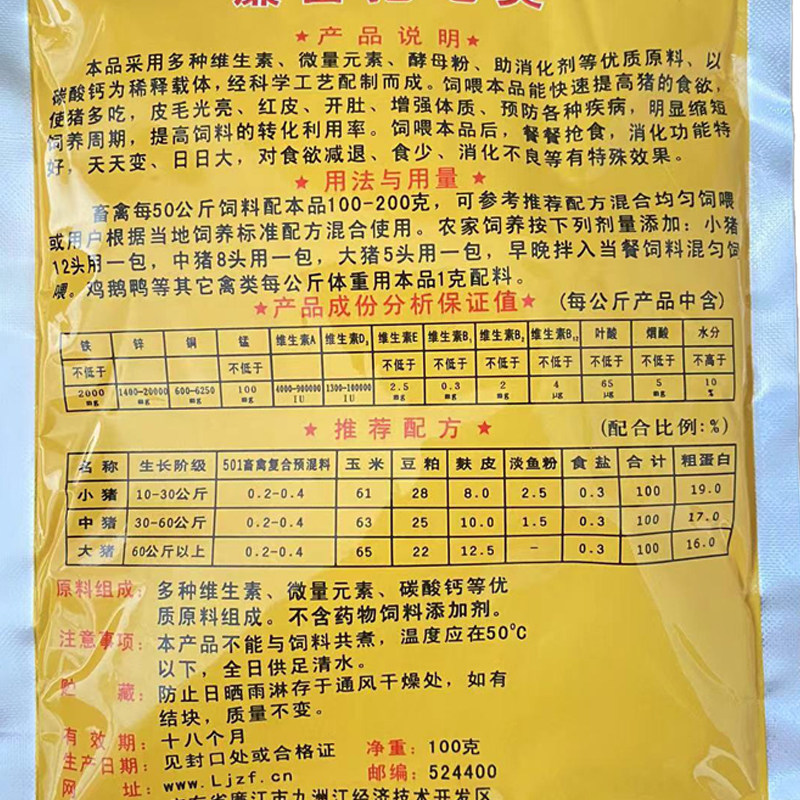 ★产品说明★
本品采用多种维生素、微量元素、酵母粉、助消化剂等优质原料、以
碳酸钙为稀释载体，经科学工艺配制而成。饲喂本品能快速提高猪的食欲，
使猪多吃，皮毛光亮、红皮、开肚、增强体质、预防各种疾病，明显缩短
饲养周期，提高饲料的转化利用率。饲喂本品后，餐餐抢食，消化功能特
好，天天变、日日大，对食欲减退、食少、消化不良等有特殊效果。
★用法与用量★
畜禽每50公斤饲料配本品100-200克，可参考推荐配方混合均匀饲喂
或用户根据当地饲养标准配方混合使用。农家饲养按下列剂量添加：小猪
12头用一包，中猪8头用一包，大猪5头用一包，早晚拌入当餐饲料混匀饲
喂。鸡鹅鸭等其它禽类每公斤体重用本品1克配料。
★产品成份分析保证值★ (每公斤产品中含)
铁 锌 铜 锰 维生素A 维生素D3 维生素E 维生素B1 维生素B2 维生素B12 叶酸 烟酸 水分
不低于 不低于 不低于 不低于 不低于 不低于 不低于 不低于 不高于
2000mg 1400-20000mg 600-6250mg 100mg 4000-900000IU 1300-100000IU 2.5mg 0.3mg 2mg 4μg 65μg 5mg 10%
★推荐配方★ (配合比例:%)
名称 生长阶级 501畜禽复合预混料 玉米 豆粕 麸皮 淡鱼粉 食盐 合计 粗蛋白
小猪 10-30公斤 0.2-0.4 61 28 8.0 2.5 0.3 100 19.0
中猪 30-60公斤 0.2-0.4 63 25 10.0 1.5 0.3 100 17.0
大猪 60公斤以上 0.2-0.4 65 22 12.5 - 0.3 100 16.0
原料组成：多种维生素、微量元素、碳酸钙等优
质原料组成。不含药物饲料添加剂。
注意事项：本产品不能与饲料共煮，温度应在50℃
以下，全日供足清水。
贮藏：防止日晒雨淋存于通风干燥处，如有
结块，质量不变。
有效期：十八个月
生产日期：见封口处或合格证 净重：100克
网址：www.Ljzf.cn 邮编：524400
广东省廉江市九洲江经济技术开发区